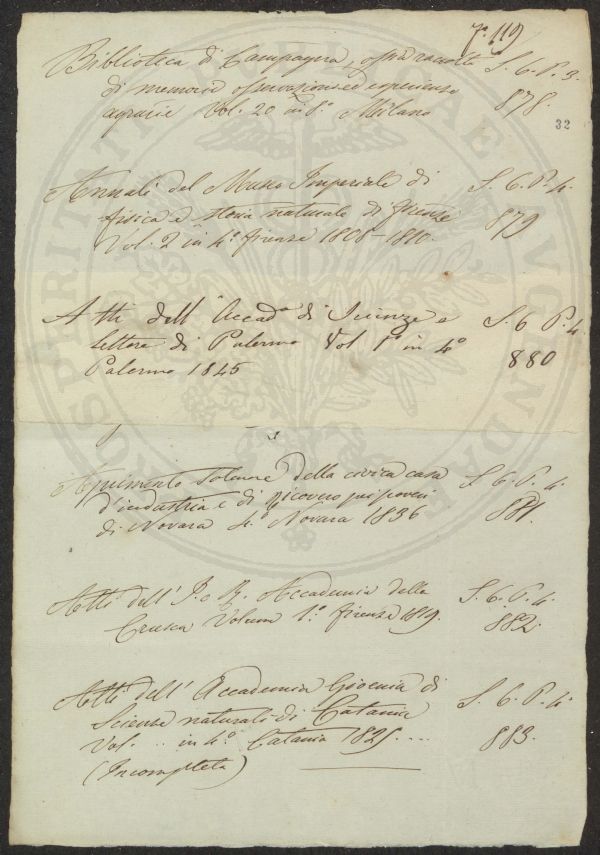 7a. 119
Biblioteca di Campagna, ossia raccolta S. 6. P. 3.
di memorie osservazioni ed esperienze
agrarie Vol. 20 in 8.o Milano 878.
32
Annali del Museo Imperiale di S. 6. P. 4.
fisica e storia naturale di Firenze 879
Vol. 2 in 4.o Firenze 1808-1810.
Atti dell' Accad.a di Scienze e S. 6 P. 4.
lettere di Palermo Vol 1.o in 4.o
Palermo 1845 880
Aprimento Solenne della civica casa S. 6. P. 4.
d'industria e di ricovero pei poveri 881.
di Novara 4.o Novara 1836
Atti dell' I. e R. Accademia della S. 6. P. 4.
Crusca Volume 1.o Firenze 1819. 882.
Atti dell' Accademia Gioenia di S. 6. P. 4.
Scienze naturali di Catania
Vol. .. in 4.o Catania 1825.... 883.
(Incompleta)